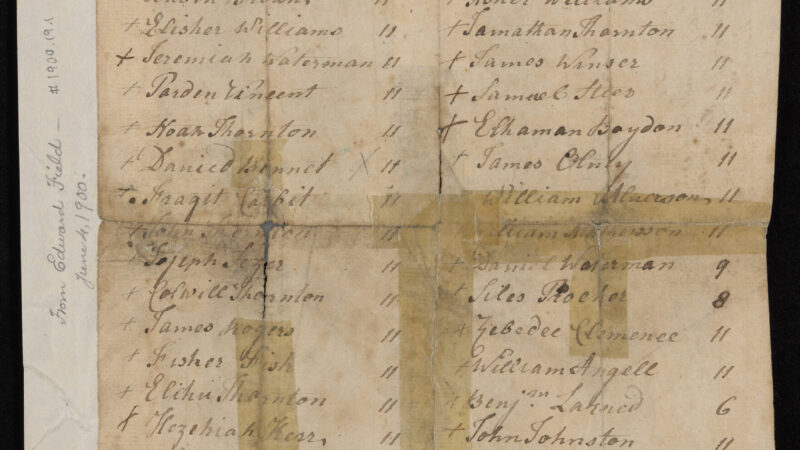 + Elisher Williams 11
+ Jeremiah Waterman 11
+ Parden Vincent 11
+ Noah Thornton 11
+ Daniel Bennet X 11
+ 11
John Thornton 11
+ Joseph 11
+ Colwill Thornton 11
+ James Rogers 11
+ Fisher Fish 11
+ Elihu Thornton 11
+ Hezehiah Kerr 11
Williams 11
+ Jamathan Thornton 11
+ James Winser 11
+ Samuel Steer 11
+ Elhaman Boydon 11
+ James Olney 11
William 11
William 11
+ Daniel Waterman 9
+ Siles 8
+ Zebedee Clemence 11
+ William Angell 11
+ Benjm Larned 6
+ John Johnston 11
From Edward Field — # 1900.19.1
June 4, 1900.